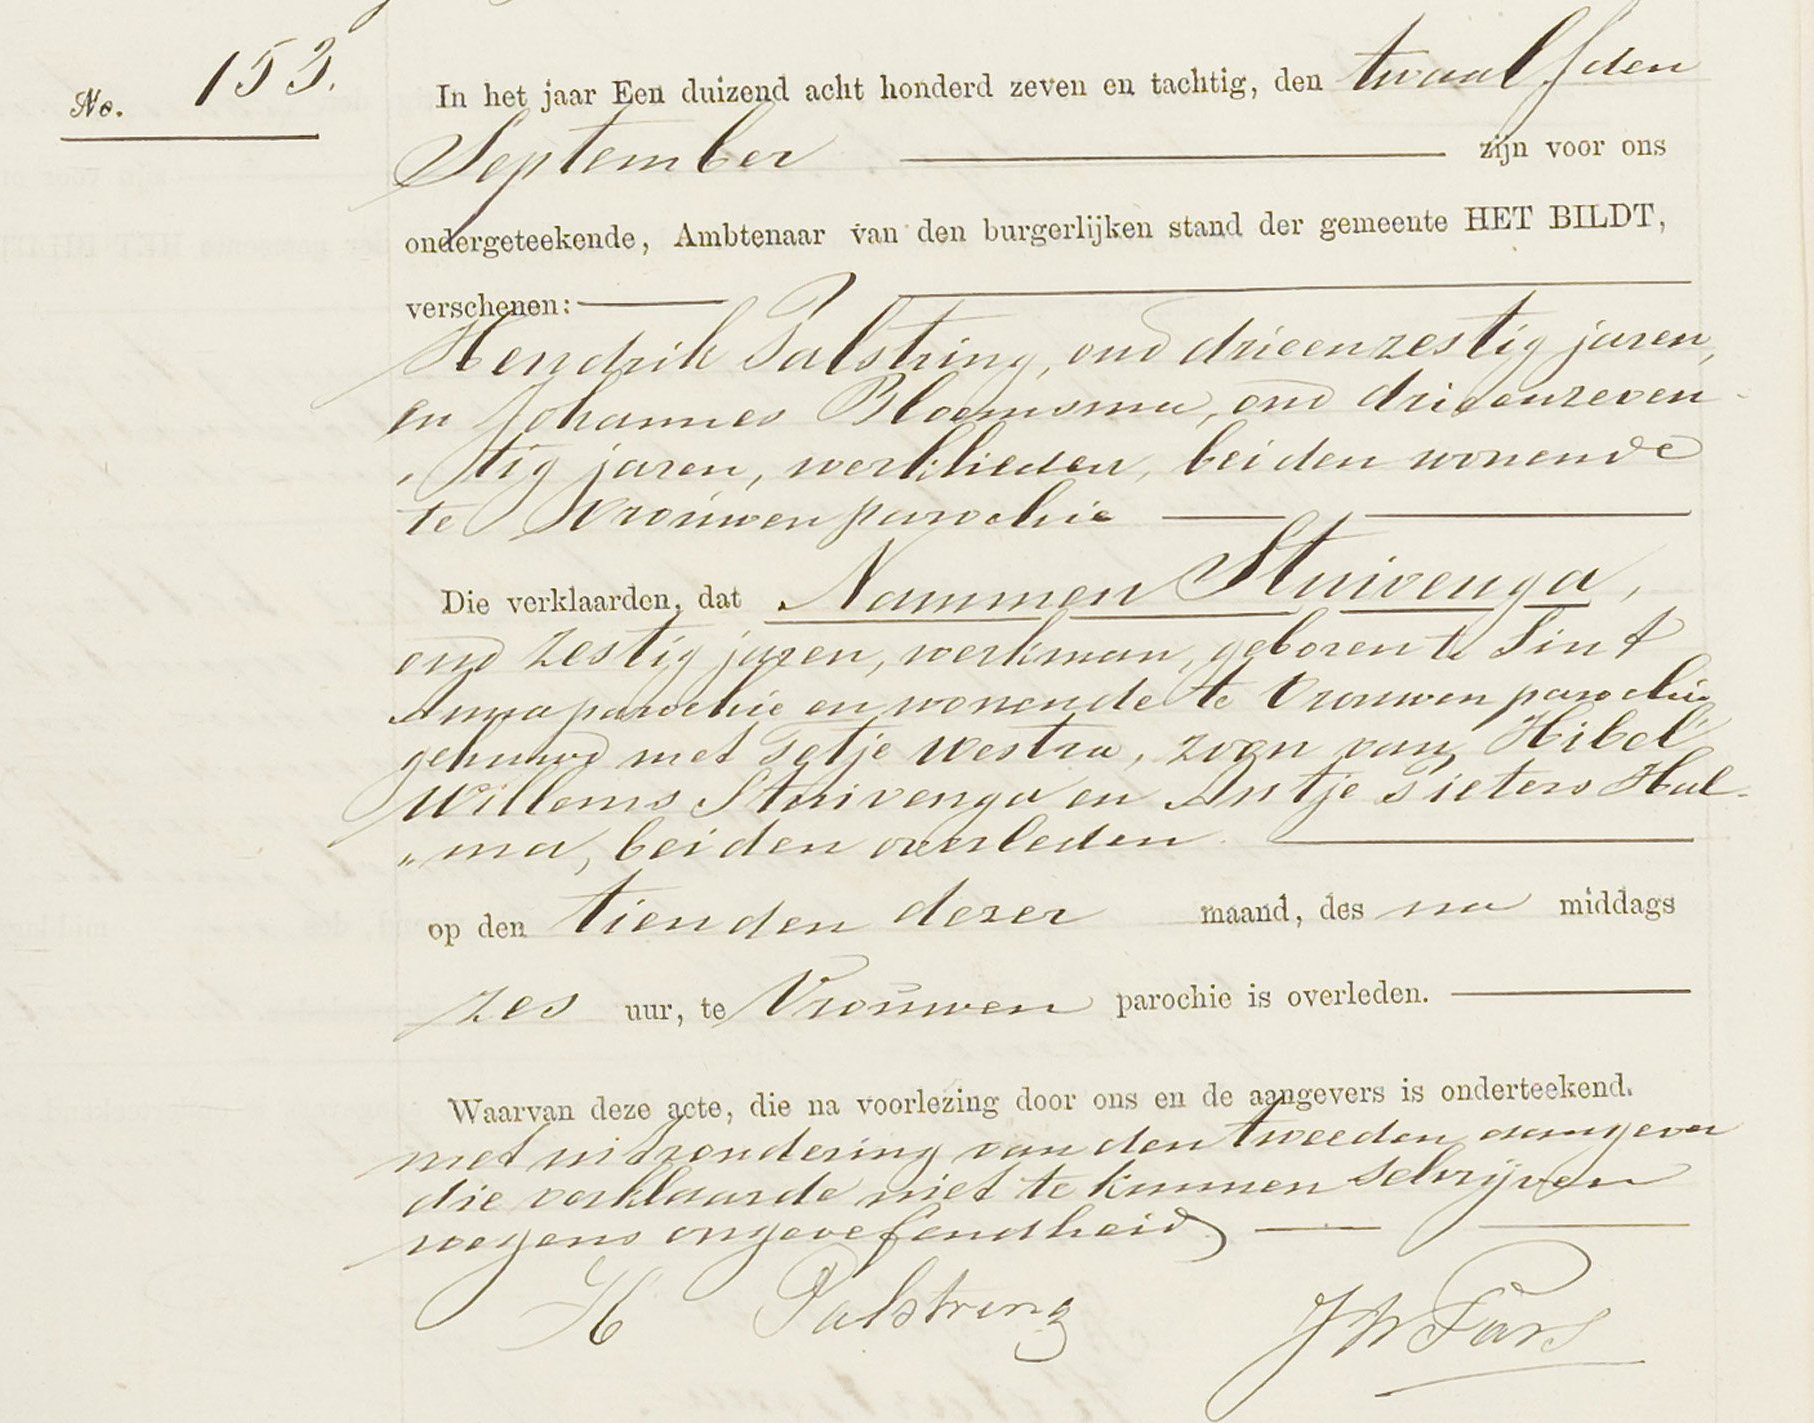 No. 153.
In het jaar Een duizend acht honderd zeven en tachtig, den twaalfden
September zijn voor ons
ondergeteekende, Ambtenaar van den burgerlijken stand der gemeente HET BILDT,
verschenen:
Hendrik Palstring, oud drieenzestig jaren,
en Johannes Bloemsma, oud drieenzeven
"tig jaren, werklieden, beiden wonende
te Vrouwenparochie
Die verklaarden, dat Nammen Stuivenga,
oud zestig jaren, werkman, geboren te Sint
Annaparochie en wonende te Vrouwenparochie
gehuwd met Setje Westra, zoon van Hibel
Willems Stuivenga en Antje Pieters Hal-
"ma, beiden overleden
op den tienden dezer maand, des na middags
zes uur, te Vrouwen parochie is overleden.
Waarvan deze acte, die na voorlezing door ons en de aangevers is onderteekend.
met uitzondering van den tweeden aangever
die verklaarde niet te kunnen schrijven
wegens ongeoefendheid
H Palstring